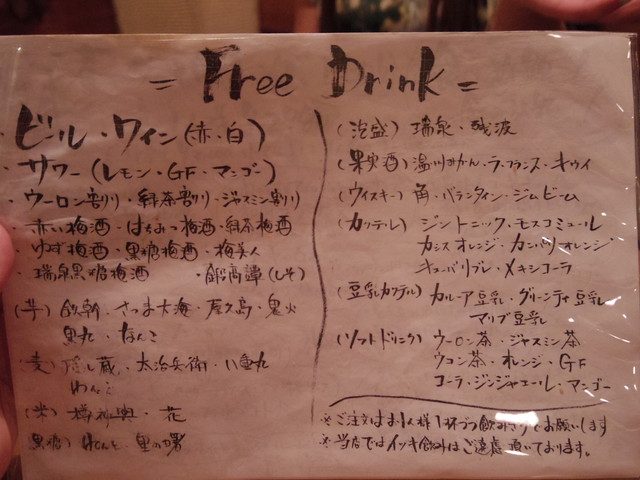 = Free Drink =
・ビール・ワイン(赤・白)
・サワー(レモン・GF・マンゴー)
・ウーロン割り・紅茶割り・ジャスミン割り
・赤い梅酒・はちみつ梅酒・紅茶梅酒
・ゆず梅酒・黒糖梅酒・梅美人
・瑞泉黒糖梅酒 ・鍛高譚(しそ)
(芋) 飫幹・さつま大海・屋久島・鬼火
黒丸・なんこ
(麦) 隠し蔵・太治兵衛・八重丸
わんこ
(米) 樽神輿・花
黒糖) れんと・里の曙
(泡盛) 瑞泉・残波
(果実酒) 温州みかん・ラ・フランス・キウイ
(ウィスキー) 角・バランタイン・ジムビーム
(カクテル) ジントニック・モスコミュール
カシスオレンジ・カンパリオレンジ
キューバリブレ・メキシコーラ
(豆乳カクテル) カルーア豆乳・グリーンティ豆乳
マリブ豆乳
(ソフトドリンク) ウーロン茶・ジャスミン茶
ウコン茶・オレンジ・GF
コーラ・ジンジャエール・マンゴー
※ご注文はお1人様1杯づつ飲みきりでお願いします
※当店ではイッキ飲みはご遠慮頂いております。